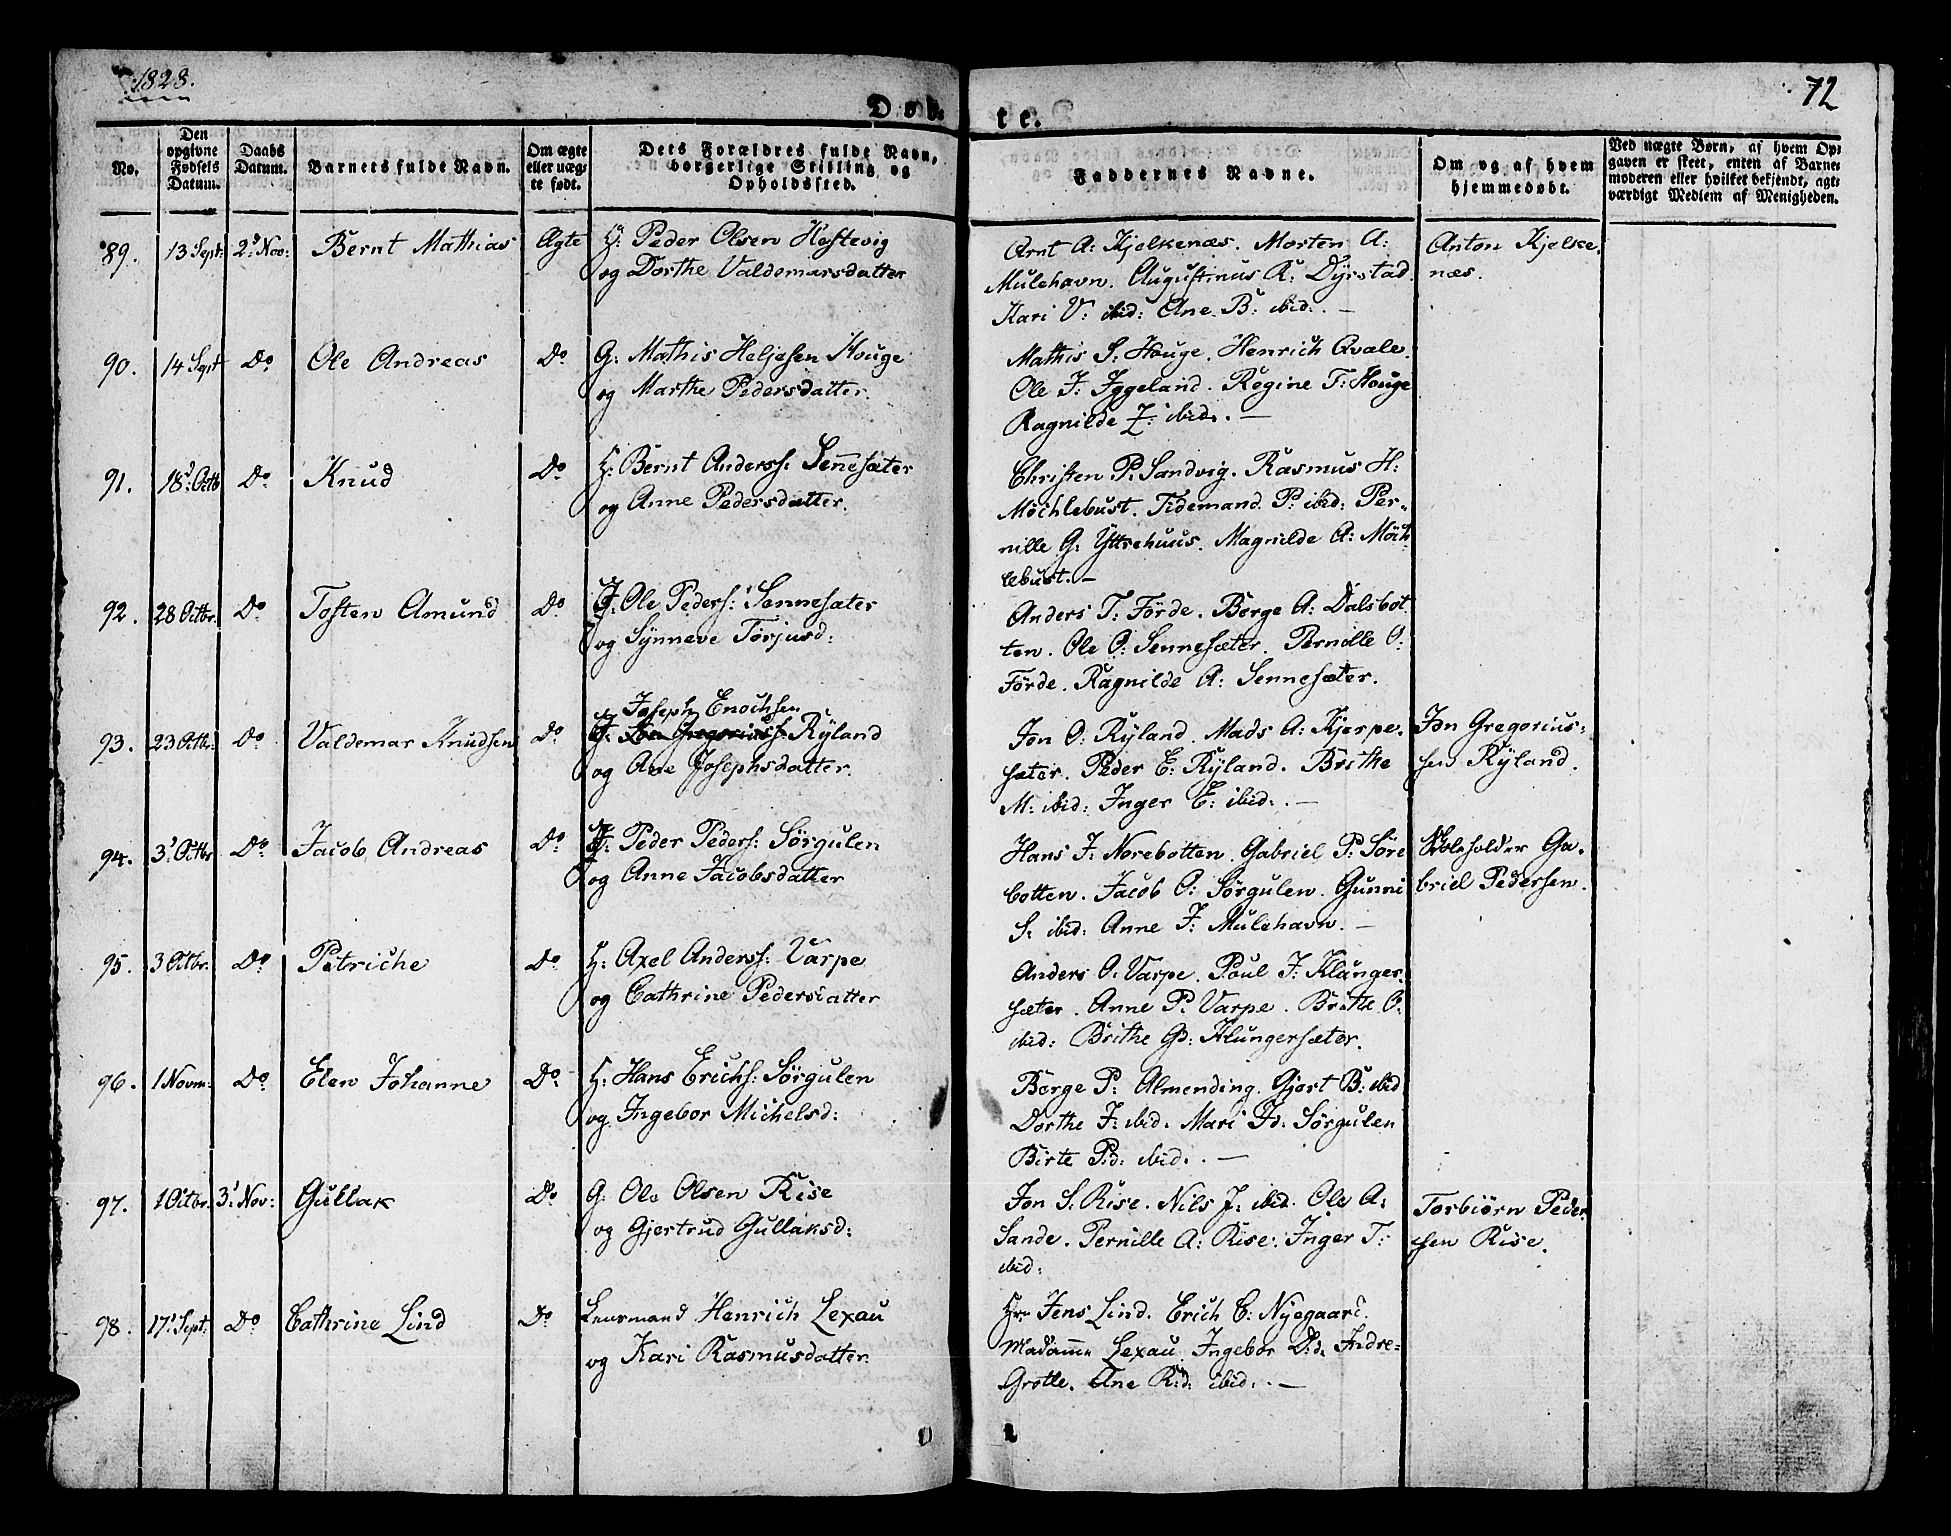 1828.
72
Døbte.
No.
Den opgivne Fødsels Datum.
Daabs Datum.
Barnets fulde Navn.
Om ægte eller uæg- te født.
Dets Forældres fulde Navn, borgerlige Stilling og Opholdssted.
Faddernes Navne.
Om og af hvem hjemmedøbt.
Ved uægte Børn, af hvem Op- gaven er skeet, enten af Barne- moderen eller hvilket bekjendt, agt- værdigt Medlem af Menigheden.
89. 13 Sept: 2' Nov: Bernt Mathias Ægte H: Peder Olsen Hestevig
og Dorthe Valdemarsdatter
Arnt A: Kjelkenæs. Morten A:
Mulehavn. Augustinus R: Dyrstad.
Kari V: ibid: Ane B: ibid: . —
Anton Kjelke-
næs.
90. 14 Sept Do Ole Andreas Do G: Mathis Heljesen Houge
og Marthe Pedersdatter.
Mathis S: Houge. Henrich Qvale.
Ole J: Iggeland. Regine T: Houge
Ragnilde L: ibid. —
91. 18' Octb Do Knud Do H: Bernt Anderss: Sennesæter
og Anne Pedersdatter.
Christen P: Sandvig. Rasmus H:
Möchlebust. Tidemand P: ibid: Per-
nille G: Yttrehuus. Magnilde A: Möch-
lebust. —
92. 28 Octbr. Do Tosten Amund Do G: Ole Peders: Sennesæter
og Synneve Torjusd:
Anders T: Förde. Børge A: Dalsbot
ten. Ole O: Sennesæter. Pernille O:
Förde. Ragnilde A: Sennesæter.
93. 23 Octbr: Do Valdemar Knudsen Do Joseph Enochsen
G: Jon Gregoriuss: Ryland
og Ane Josephsdatter.
Jon O: Ryland. Mads A: Kjerpe-
sæter. Peder E: Ryland. Brithe
M: ibid: Inger E: ibid: . —
Jon Gregorius-
sen Ryland.
94. 3' Octbr Do Jacob Andreas Do Peder Peders: Sørgulen
og Anne Jacobsdatter
Hans J: Norebotten. Gabriel P: Søre
botten. Jacob O: Sørgulen. Gunni
S: ibid: Anne J: Mulehavn. —
Skoleholder Ga-
briel Pedersen.
95. 3 Octbr. Do Petriche Do H: Axel Anderss: Varpe
og Cathrine Pedersdatter
Anders O: Varpe. Poul J: Klunger-
sæter. Anne P: Varpe. Brithe O:
ibid: Brithe Gd: Klungersæter.
96. 1 Novm: Do Elen Johanne Do H: Hans Erichs: Sørgulen
og Ingebor Michelsd:
Børge P: Almending. Gjert B: ibid
Dorthe J: ibid. Mari Pd: Sørgulen
Birte Pd: ibid. . —
97. 1 Octbr. 3' Nov: Gullak Do G: Ole Olsen Rise
og Gjertrud Gullaksd:
Jon S: Rise. Nils J: ibid. Ole A:
Sande. Pernille A: Rise. Inger T:
ibid:
Torbiørn Peder
sen Rise.
98. 17' Sept: Do Cathrine Lind Do Leursmand Henrich Lexau
og Kari Rasmusdatter
Hr: Jens Lind. Erich C: Nyegaard.
Madame Lexau. Ingebor Dd. Indre-
Grotle. Ane Rd: ibid: . —